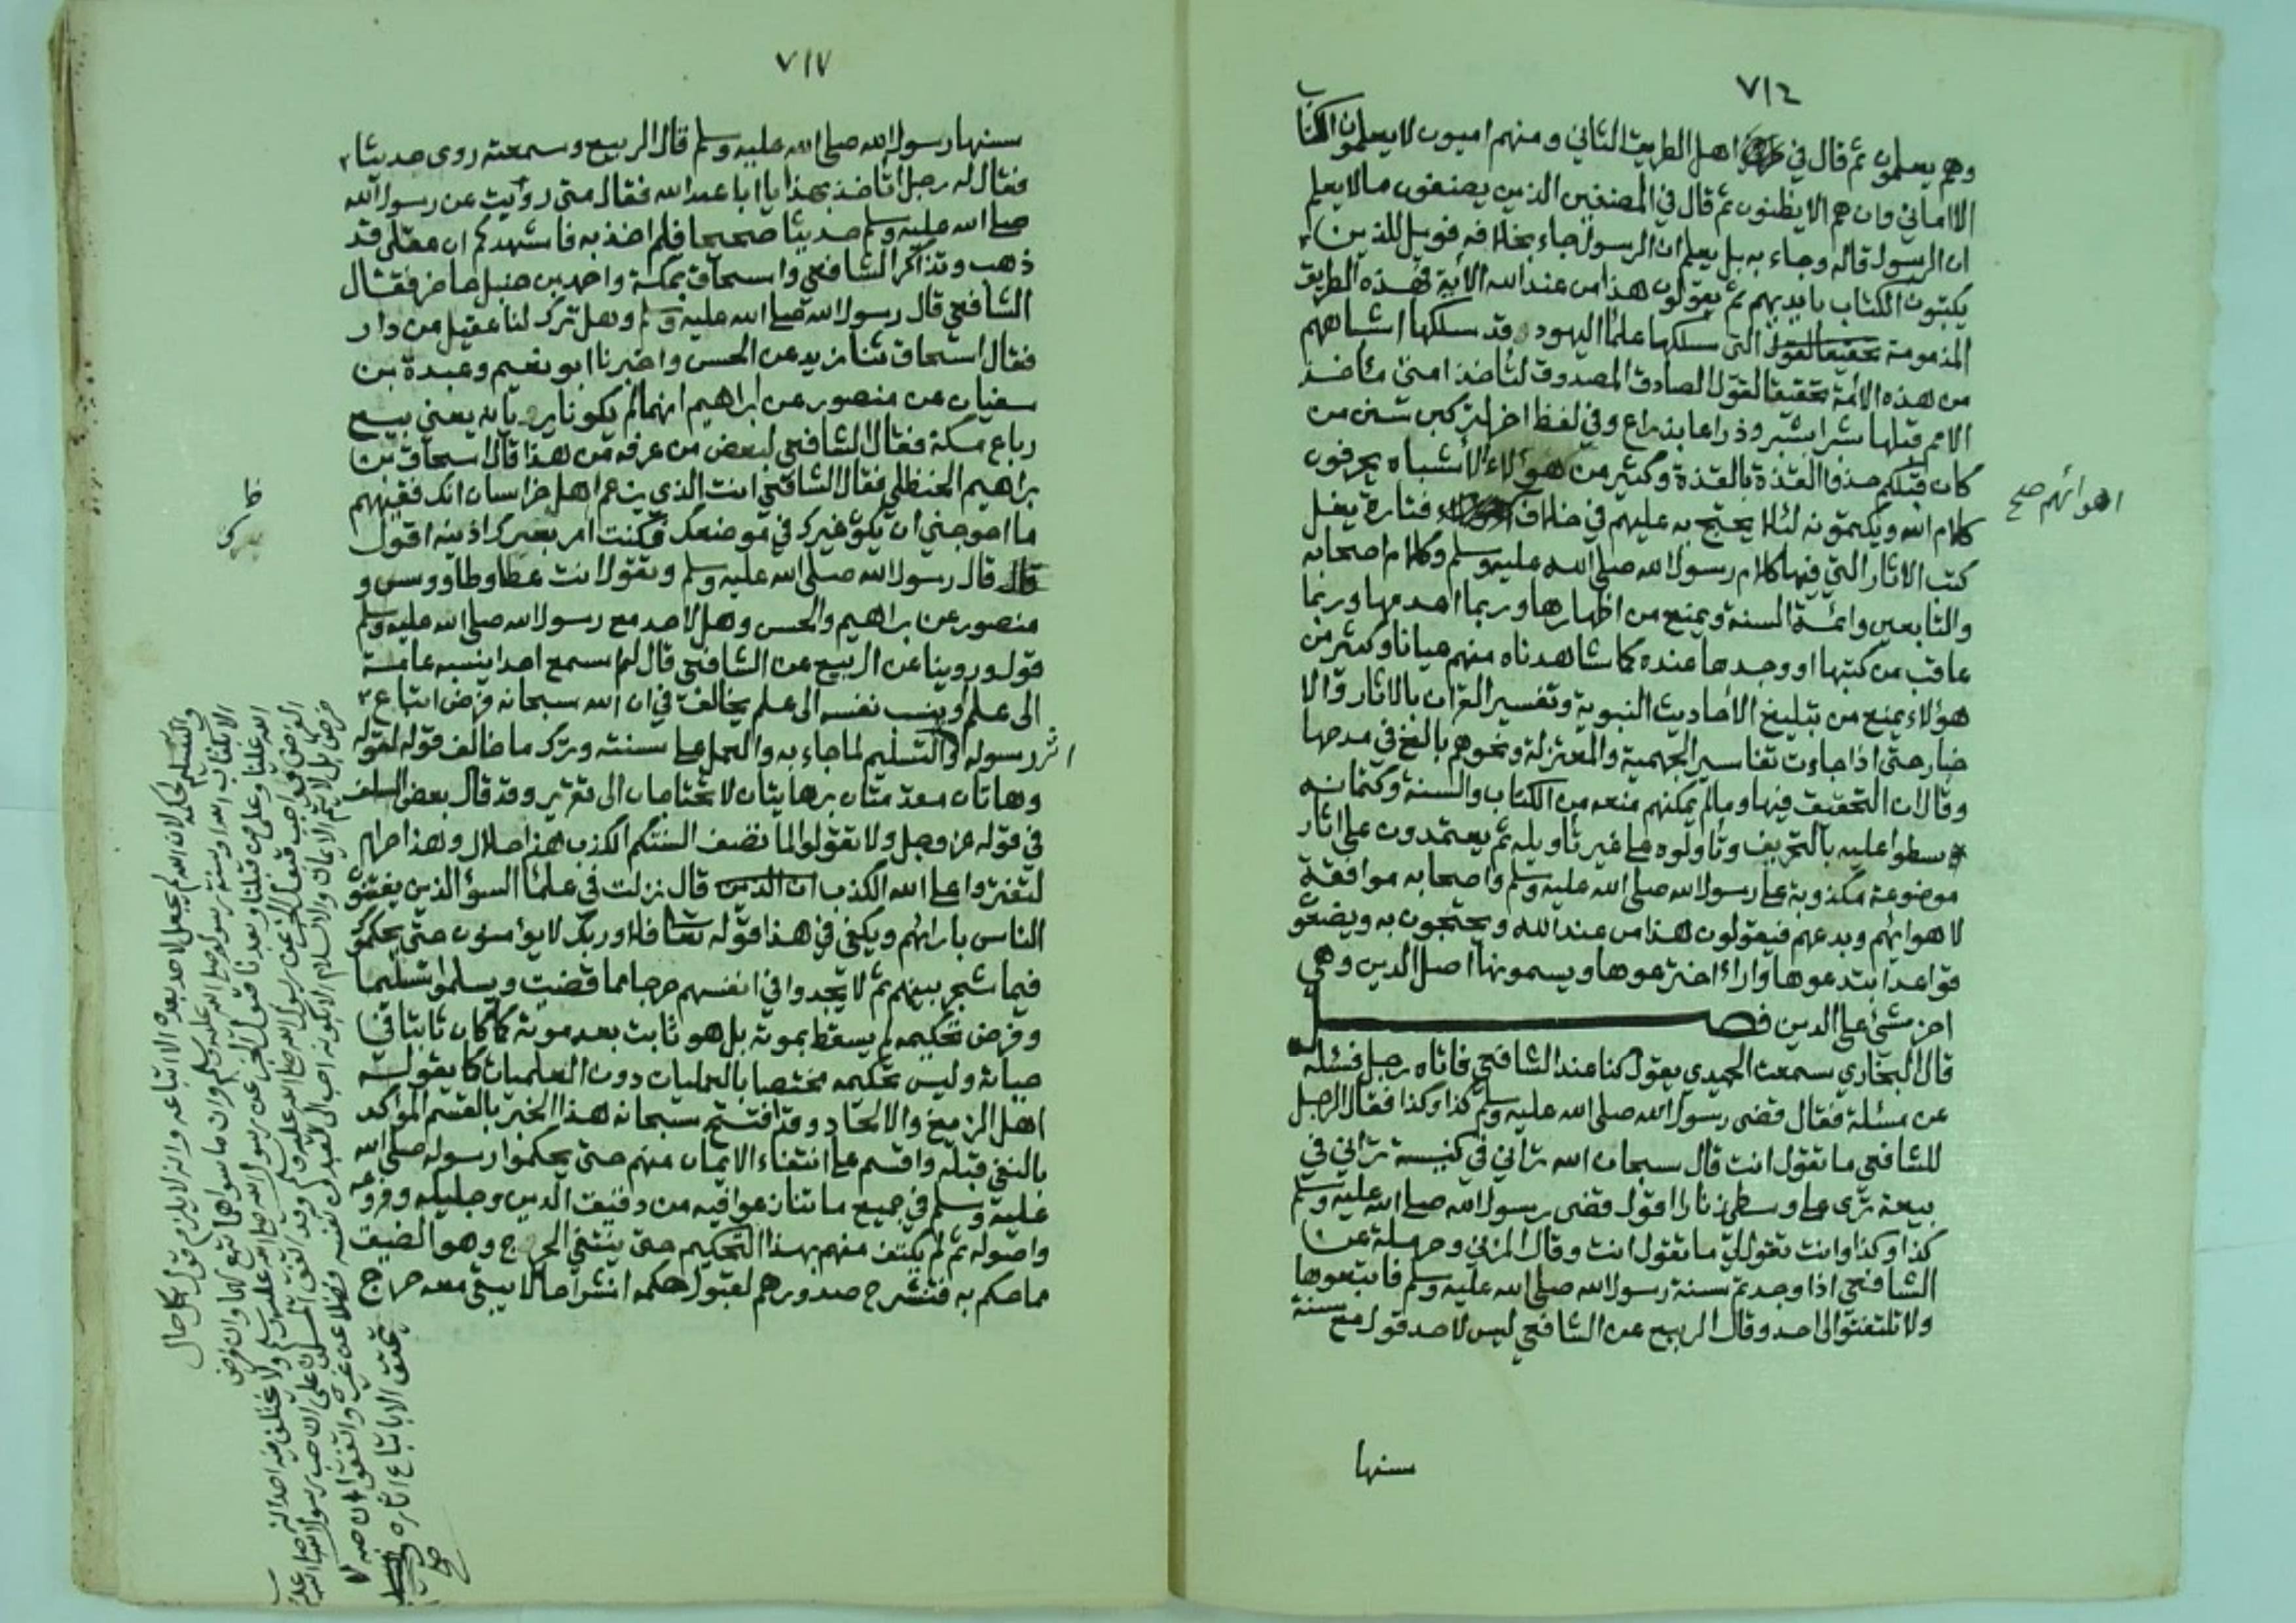 ٧١٤
وهم يعلمون ثم قال في اهل الطريق الثاني ومنهم اميون لا يعلمون الكتاب
الا اماني وان هم الا يظنون ثم قال في المصنفين الذين يصنفون ما لا يعلم
ان الرسول قاله وجاء به بل يعلم ان الرسول جاء بخلافه فويل للذين
يكتبون الكتاب بايديهم ثم يقولون هذا من عند الله الآية فهذه الطريق
المذمومة التي سلكها علماء اليهود وقد سلكها اشباههم
من هذه الامة تحقيقا لقول الصادق المصدوق لتأخذ امتي مأخذ
الامم قبلها شبرا بشبر وذراعا بذراع وفي لفظ اخر لتركبن سنن من
كان قبلكم حذو القذة بالقذة وكثير من هؤلاء الأشباه يحرفون
كلام الله ويكتمونه لئلا يحتج به عليهم في خلاف فتارة يغل
اهوائهم صح
كتب الاثار التي فيها كلام رسول الله صلى الله عليه وسلم وكلام اصحابه
والتابعين وائمة السنة ويمنع من اظهارها وربما اعدمها وربما
عاقب من كتبها او وجدها عنده كما شاهدناه منهم عيانا وكثير من
هؤلاء يمنع من تبليغ الأحاديث النبوية وتفسير القرآن بالاثار والا
خبار حتى اذا جاءت تفاسير الجهمية والمعتزلة ونحوهم بالغ في مدحها
وقال ان التحقيق فيها وما لم يمكنهم منعه من الكتاب والسنة وكتمانه
سطوا عليه بالتحريف وتأولوه على غير تأويله ثم يعتمدون على اثار
موضوعة مكذوبة على رسول الله صلى الله عليه وسلم واصحابه موافقة
لاهوائهم وبدعهم فيقولون هذا من عند الله ويحتجون به ويضعون
قواعد ابتدعوها واراء اخترعوها ويسمونها اصل الدين وهي
اضر شئ على الدين فصل
قال البخاري سمعت الحميدي يقول كنا عند الشافعي فاتاه رجل فسئله
عن مسئلة فقال قضى رسول الله صلى الله عليه وسلم كذا وكذا فقال الرجل
للشافعي ما تقول انت قال سبحان الله تراني في كنيسة تراني في
بيعة ترى على وسطي زنارا اقول قضى رسول الله صلى الله عليه وسلم
كذا وكذا وانت تقول لي ما تقول انت وقال المزني وحرملة عن
الشافعي اذا وجدتم سنة رسول الله صلى الله عليه وسلم فاتبعوها
ولا تلتفتوا الى احد وقال الربيع عن الشافعي ليس لاحد قول مع سنة
سنها
٧١٧
سنها رسول الله صلى الله عليه وسلم قال الربيع وسمعته روى حديثا
فقال له رجل اتأخذ بهذا يا ابا عبد الله فقال متى رويت عن رسول الله
صلى الله عليه وسلم حديثا صحيحا فلم اخذ به فاشهدكم ان عقلي قد
ذهب وتذاكر الشافعي واسحاق بمكة واحمد بن حنبل حاضر فقال
الشافعي قال رسول الله صلى الله عليه وسلم وهل ترك لنا عقيل من دار
فقال اسحاق ثنا يزيد عن الحسن واخبرنا ابو نعيم وعبدة بن
سفيان عن منصور عن ابراهيم انهما لم يكونا يريانه يعني بيع
رباع مكة فقال الشافعي لبعض من عرفه من هذا قال اسحاق بن
براهيم الحنظلي فقال الشافعي انت الذي يزعم اهل خراسان انك فقيههم
ما احوجني ان يكون غيرك في موضعك فكنت امر بعرك اذنيه اقول
قال قال رسول الله صلى الله عليه وسلم وتقول انت عطا وطاووس و
منصور عن براهيم والحسن وهل لاحد مع رسول الله صلى الله عليه وسلم
قول وروينا عن الربيع عن الشافعي قال لم اسمع احدا ينسبه عامة
الى علم او ينسب نفسه الى علم يخالف في ان الله سبحانه فرض اتباع
رسوله والتسليم لما جاء به والعمل على سنته وترك ما خالف قوله لقوله
وهاتان مقدمتان برهانيتان لا تحتاجان الى تقرير وقد قال بعض السلف
في قوله عز وجل ولا تقولوا لما تصف السنتكم الكذب هذا حلال وهذا حرام
لتفتروا على الله الكذب ان الذين قال نزلت في علماء السوء الذين يفتون
الناس بارائهم ويكفي في هذا قوله تعالى فلا وربك لا يؤمنون حتى يحكموك
فيما شجر بينهم ثم لا يجدوا في انفسهم حرجا مما قضيت ويسلموا تسليما
وفرض تحكيمه لم يسقط بموته بل هو ثابت بعد موته كما كان ثابتا في
حياته وليس تحكيمه مختصا بالعمليات دون العلميات كما يقوله
اهل الزيغ والالحاد وقد افتتح سبحانه هذا الخبر بالقسم المؤكد
بالنفي قبله واقسم على انتفاء الايمان منهم حتى يحكموا رسوله صلى الله
عليه وسلم في جميع ما تنازعوا فيه من دقيق الدين وجليله وفروعه
واصوله ثم لم يكتف منهم بهذا التحكيم حتى ينتفي الحرج وهو الضيق
مما حكم به فتنشرح صدورهم لقبول حكمه انشراحا لا يبقى معه حرج
والتسليم لحكمه لان الله لم يجعل لاحد بعده الا اتباعه وانه لا يلزم قول بكل حال
الا بكتاب الله او سنة رسوله صلى الله عليه وسلم وان ما سواهما تبع لهما وان فرض
الله علينا وعلى من قبلنا وبعدنا قبول الخبر عن رسول الله صلى الله عليه وسلم